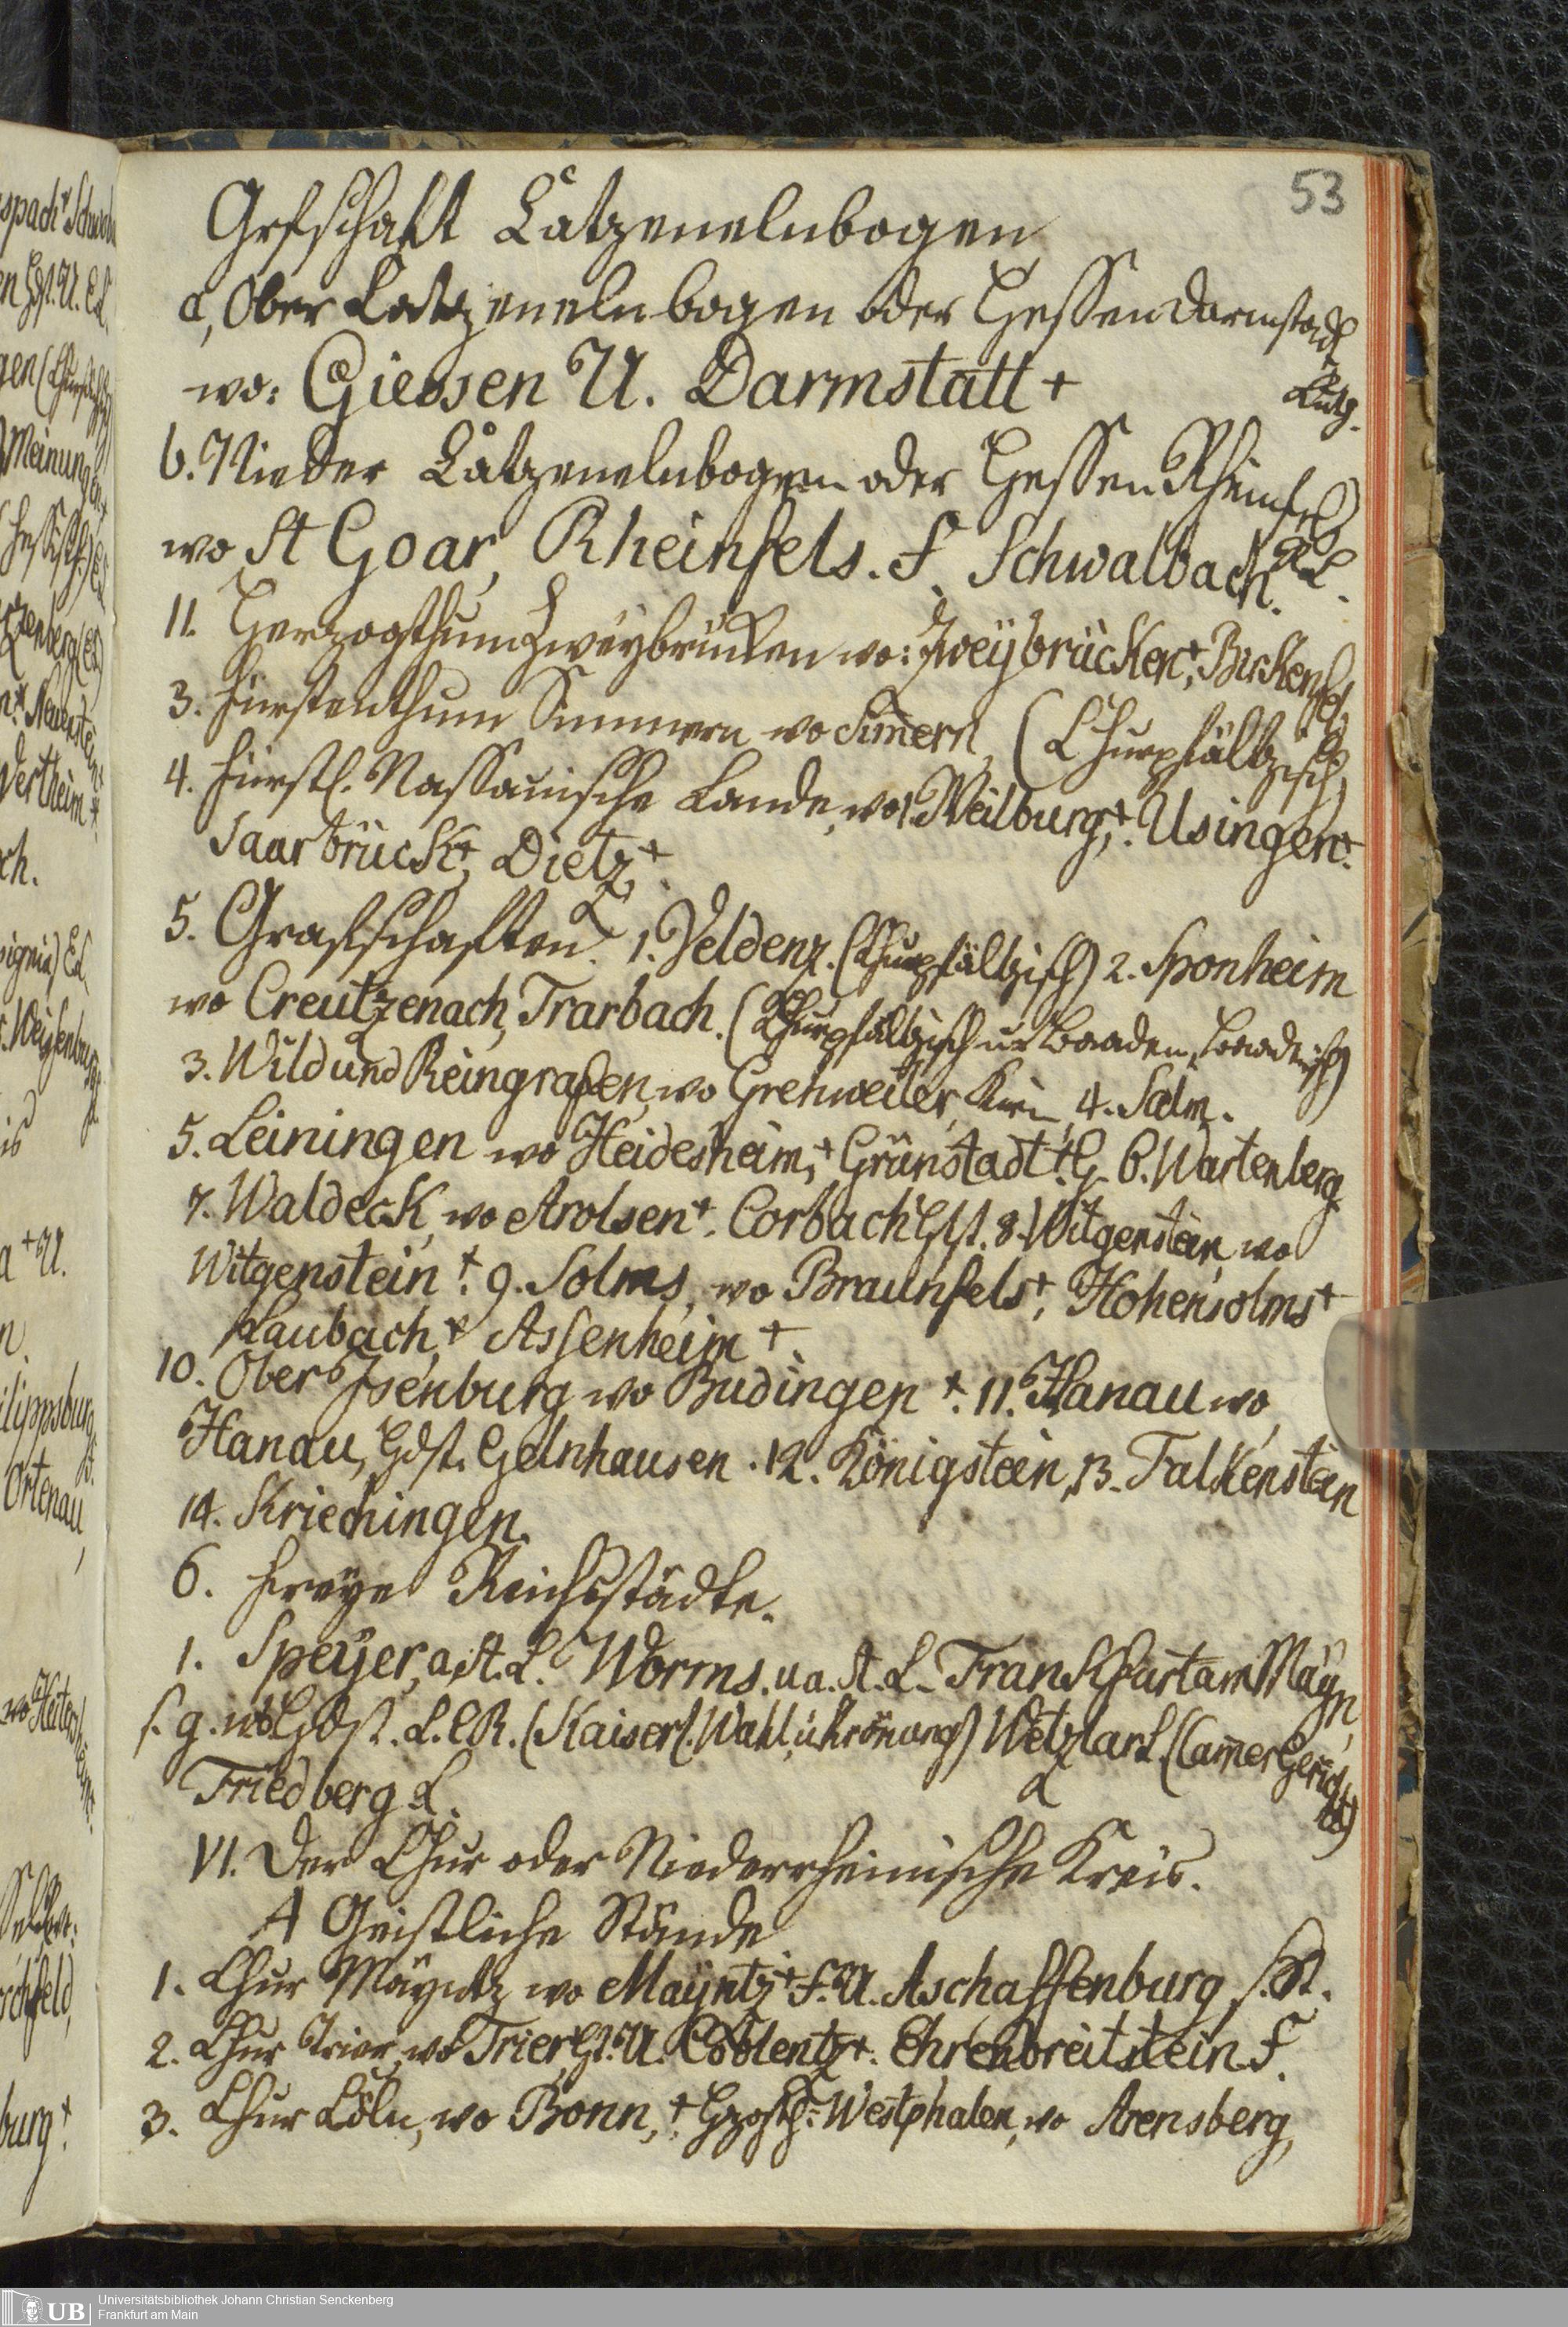 53
Grfschaft Catzenelnbogen
a, Ober Catzenelnbogen oder Hessen Darmstadt
wo: Giessen U. Darmstatt +
b. Nieder Catzenelnbogen oder Hessen Rheinfels
wo St Goar, Rheinfels. F. Schwalbach.
11. Herzogthum Zweybrücken wo: Zweÿbrücken+, Birkenfeld
3. Fürstenthum Simmern wo Sim̅ern, (Churpfältzisch)
4. Fürstl. Nassauische Lande, wo Weilburg,+. Usingen+.
Saarbrück+, Dietz+.
5. Grafschaften. 1. Veldenz. (Churpfältzisch) 2. Sponheim
wo Creutzenach, Trarbach. (Churpfältzisch u Baaden Baadnisch)
3. Wild und Reingrafen, wo Grehweiler, Kirn 4. Salm.
5. Leiningen wo Heidesheim,+ Grünstadt+. G. 6. Wartenberg
7. Waldeck, wo Arolsen+. Corbach 8. Witgenstein, wo
Witgenstein+. 9. Solms, wo Braunfels+, Hohensolms+
Laubach,+ Assenheim +.
10. Ober Isenburg wo Budingen +. 11. Hanau wo
Hanau, Gelnhausen. 12. Königstein, 13. Falkenstein
14. Kriechingen.
6. Freye Reichsstädte.
1. Speÿer, a. St. L. Worms. u a. St. L. Frankfurt am Mayn,
s. g. L. C R. (Kaiserl. Wahl u Krönung) Wetzlar L. (Cam̅er Gericht)
Friedberg L.
VI. Der Chur oder Niederrheinische Kreis.
A Geistliche Stände
1. Chur Mäyntz wo Mayntz+ F. U. Aschaffenburg, s. St.
2. Chur Trier, wo Trier U. Coblentz+. Ehrenbreitstein F.
3. Chur Cöln, wo Bonn,+. Hzgth: Westphalen, wo Arensberg,
UB Universitätsbibliothek Johann Christian Senckenberg
Frankfurt am Main